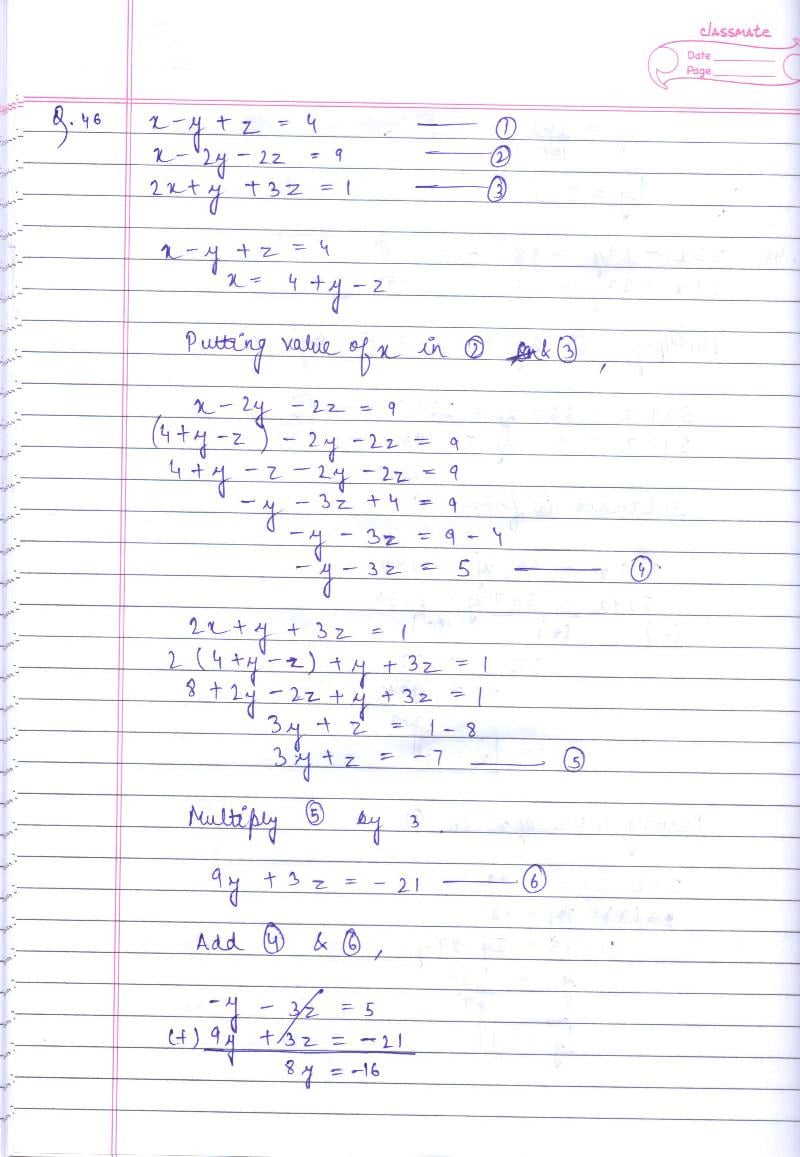 classmate
Date
Page
Q.46 x - y + z = 4 —— ①
x - 2y - 2z = 9 —— ②
2x + y + 3z = 1 —— ③
x - y + z = 4
x = 4 + y - z
Putting value of x in ② & ③,
x - 2y - 2z = 9
(4 + y - z) - 2y - 2z = 9
4 + y - z - 2y - 2z = 9
-y - 3z + 4 = 9
-y - 3z = 9 - 4
-y - 3z = 5 —— ④
2x + y + 3z = 1
2(4 + y - z) + y + 3z = 1
8 + 2y - 2z + y + 3z = 1
3y + z = 1 - 8
3y + z = -7 —— ⑤
Multiply ⑤ by 3.
9y + 3z = -21 —— ⑥
Add ④ & ⑥,
-y - 3z = 5
(+) 9y + 3z = -21
8y = -16